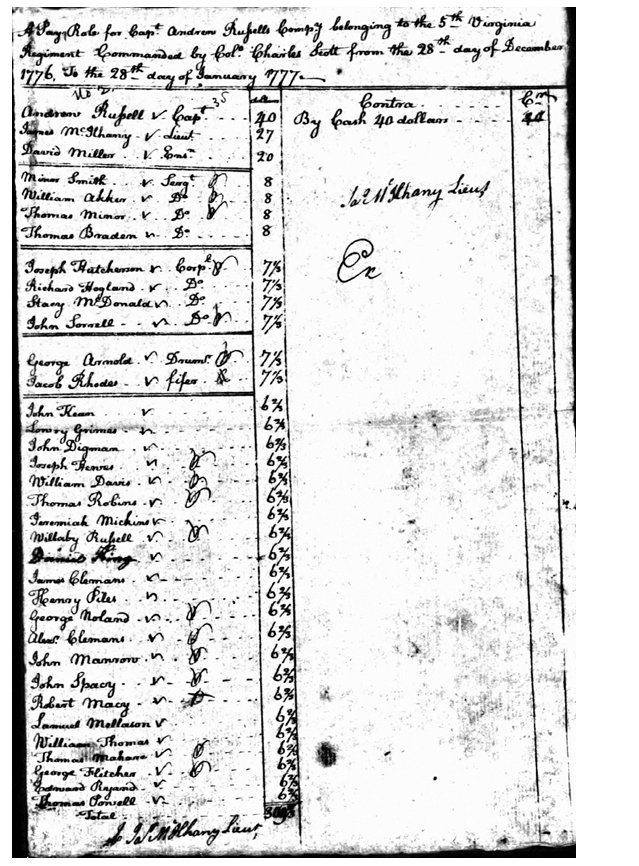 A Pay Role for Capt. Andrew Russells Compy belonging to the 5th Virginia
Regiment Commanded by Colo. Charles Scott from the 28th day of December
1776, To the 28th day of January 1777
No 2.
dollars
Contra Cr
Andrew Russell Capt 40 By Cash 40 dollars
James McIlhany Lieut. 27
David Miller Ens. 20
Minor Smith Sergt 8 Jas McIlhany Lieut
William Akker Do 8
Thomas Minor Do 8
Thomas Braden Do 8
Joseph Hutcherson Corpl 7⅓
Richard Hogland Do 7⅓
Stacy McDonald Do 7⅓
John Sorrell Do 7⅓
George Arnold Drumr 7⅓
Jacob Rhodes fifer 7⅓
John Kean 6⅔
Lowry Grimes 6⅔
John Digman 6⅔
Joseph Hewes 6⅔
William Davis 6⅔
Thomas Robins 6⅔
Jeremiah Mickins 6⅔
Willaby Russell 6⅔
Daniel King 6⅔
James Clemans 6⅔
Henry Piles 6⅔
George Noland 6⅔
Alexr Clemans 6⅔
John Manrow 6⅔
John Spacy 6⅔
Robert Macy 6⅔
Samuel Mellason 6⅔
William Thomas 6⅔
Thomas Mahane 6⅔
George Flitcher 6⅔
Edward Ryand 6⅔
Thomas Powell 6⅔
Total
Jas McIlhany Lieut